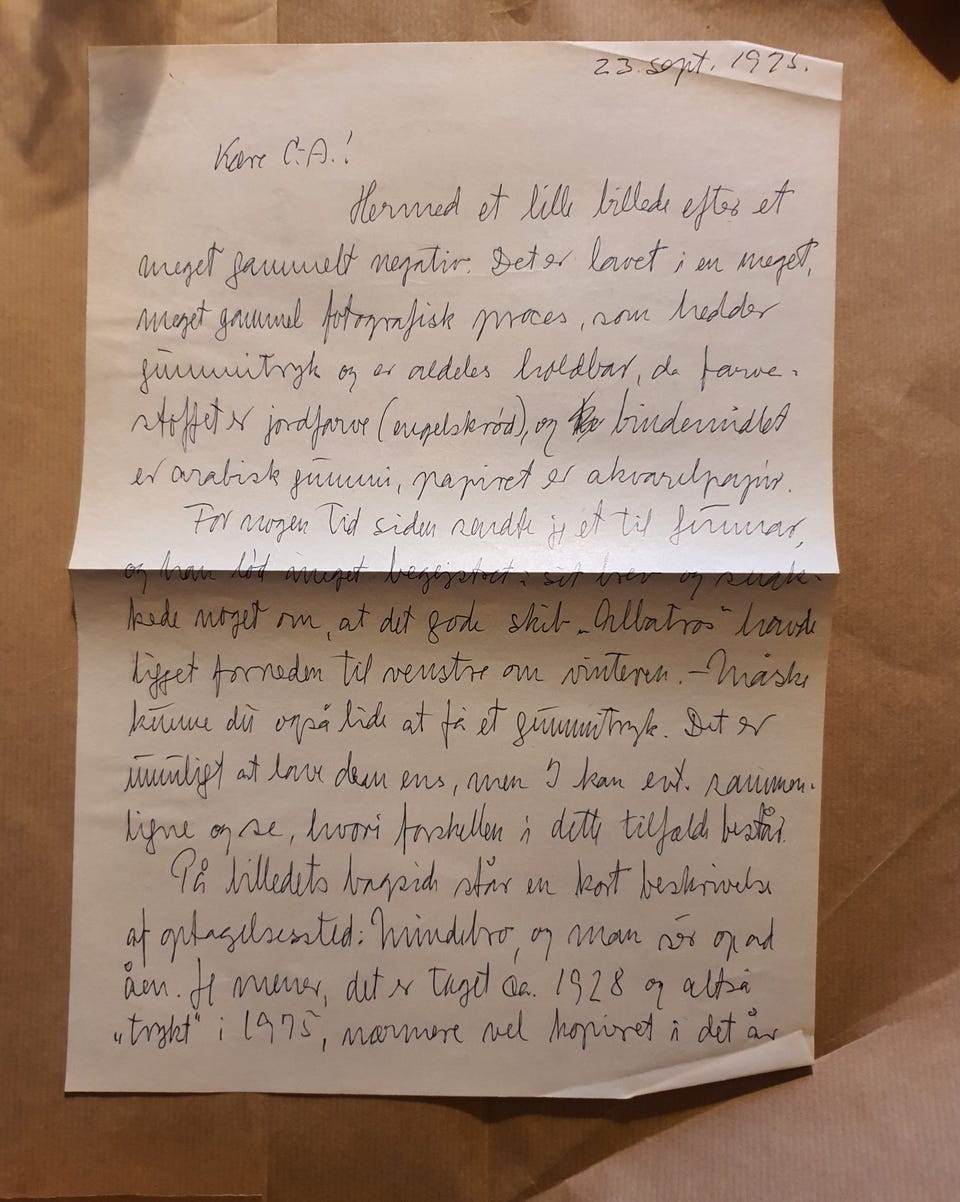 23. sept. 1975.
Kære C.-A.!
Hermed et lille billede efter et
meget gammelt negativ. Det er lavet i en meget,
meget gammel fotografisk proces, som hedder
gummitryk og er aldeles holdbar, da farve-
stoffet er jordfarve (engelskrød), og bindemidlet
er arabisk gummi, papiret er akvarelpapir.
For nogen tid siden sendte jeg et til Gunnar,
og han lød meget begejstret i sit brev og snak-
kede noget om, at det gode skib „Albatros" havde
ligget forneden til venstre om vinteren. – Måske
kunne du også lide at få et gummitryk. Det er
umuligt at lave dem ens, men I kan evt. sammen-
ligne og se, hvori forskellen i dette tilfælde består.
På billedets bagside står en kort beskrivelse
af optagelsessted: Mindebro, og man ser op ad
åen. Jeg mener, det er taget ca. 1928 og altså
„trykt" i 1975, nærmere vel kopieret i det år